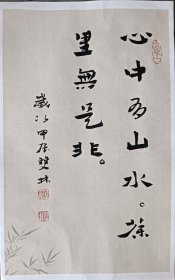 心中有山水。茶
里無是非。
歲次甲辰